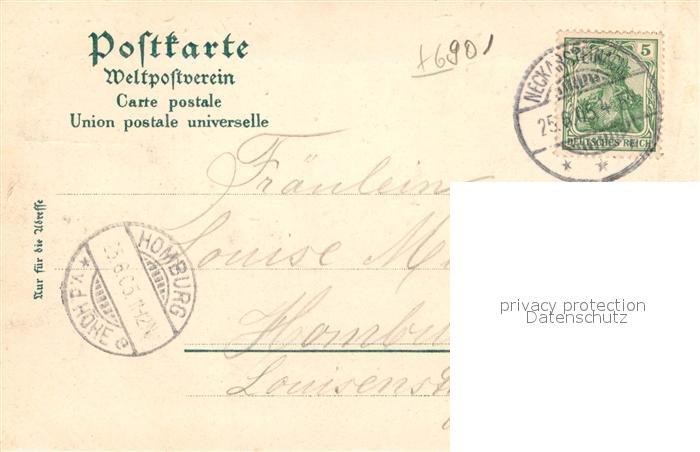 Postkarte
Weltpostverein
Carte postale
Union postale universelle
Nur für die Adresse
+6901
5
DEUTSCHES REICH
NECKARSTEINACH
25.6.05.
Fräulein
Louise M
Hombu
Louisenst
HOMBURG
25.6.05.
HÖHE
privacy protection
Datenschutz